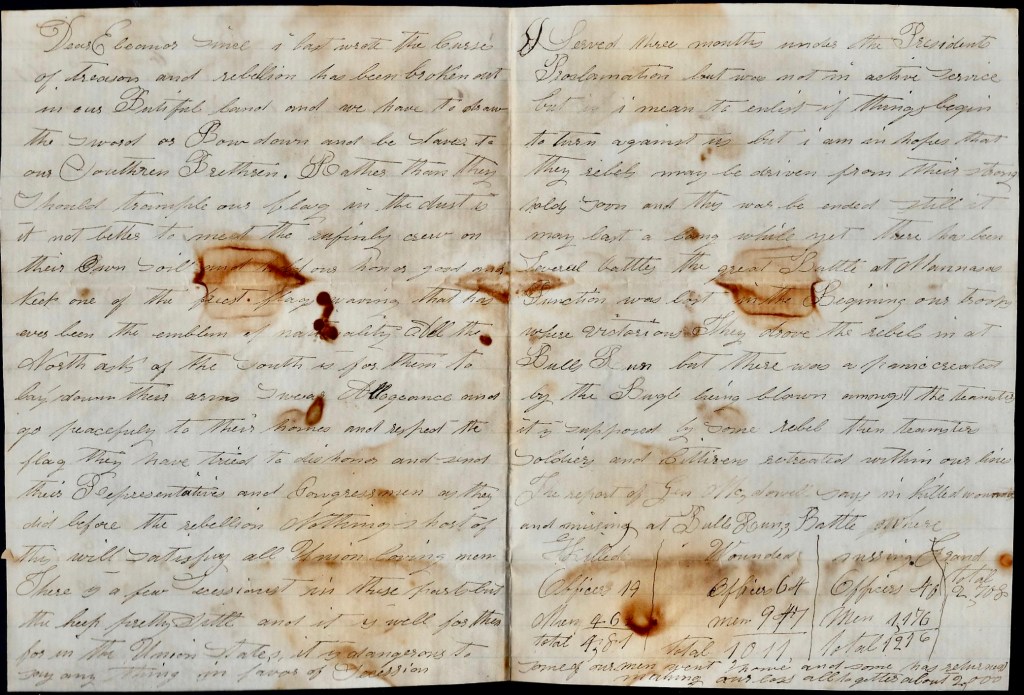 Dear Eleanor since i last wrote the Curse
of treason and rebellion has been broken out
in our Butiful land and we have to draw
the sword or Bow down and be Slaves to
our Southren Brethren. Rather than they
Should trample our flag in the dust is
it not better to meat the crew on
their Own soil and our honor good and
keep one of the flags waving that has
ever been the emblem of nationality All the
North asks of the South is for them to
lay down their arms Swear Allegeance and
go peacefuly to their homes and respect the
flag they have tried to dishonor and send
their Representatives and Congressmen as they
did before the rebellion Nothing short of
this will satisfy all Union loving men
There is a few secionist in these parts but
the keep pretty Still and it is well for them
for in the Union States, it is dangerous to
say any thing in favor of Secession
I Served three months under the Presidents
Proclamation but was not in active service
but i mean to enlist if things begin
to turn against us but i am in hopes that
they rebels may be driven from their strong
holds soon and this war be ended still it
may last a long while yet there has been
Severel battles the great Battle at Mannasas
Junction was lost in the Begining our troops
where victorious They drove the rebels in at
Bulls Run but there was a panic created
by the Bugle being blown amongst the teamsters
it is supposed by some rebel then teamster
soldiers and Citizens retreated within our lines
The report of Gen McDowell says in killed wounded
and missing at Bulls Run Battle where
Killed Wounded missing Grand
Officers 19 Officers 64 Officers 40 total
Men 462 men 947 Men 1,176 2,708
total 481 total 1011 total 1216
some of our men went home and some has returned
making our loss all together about 2,000